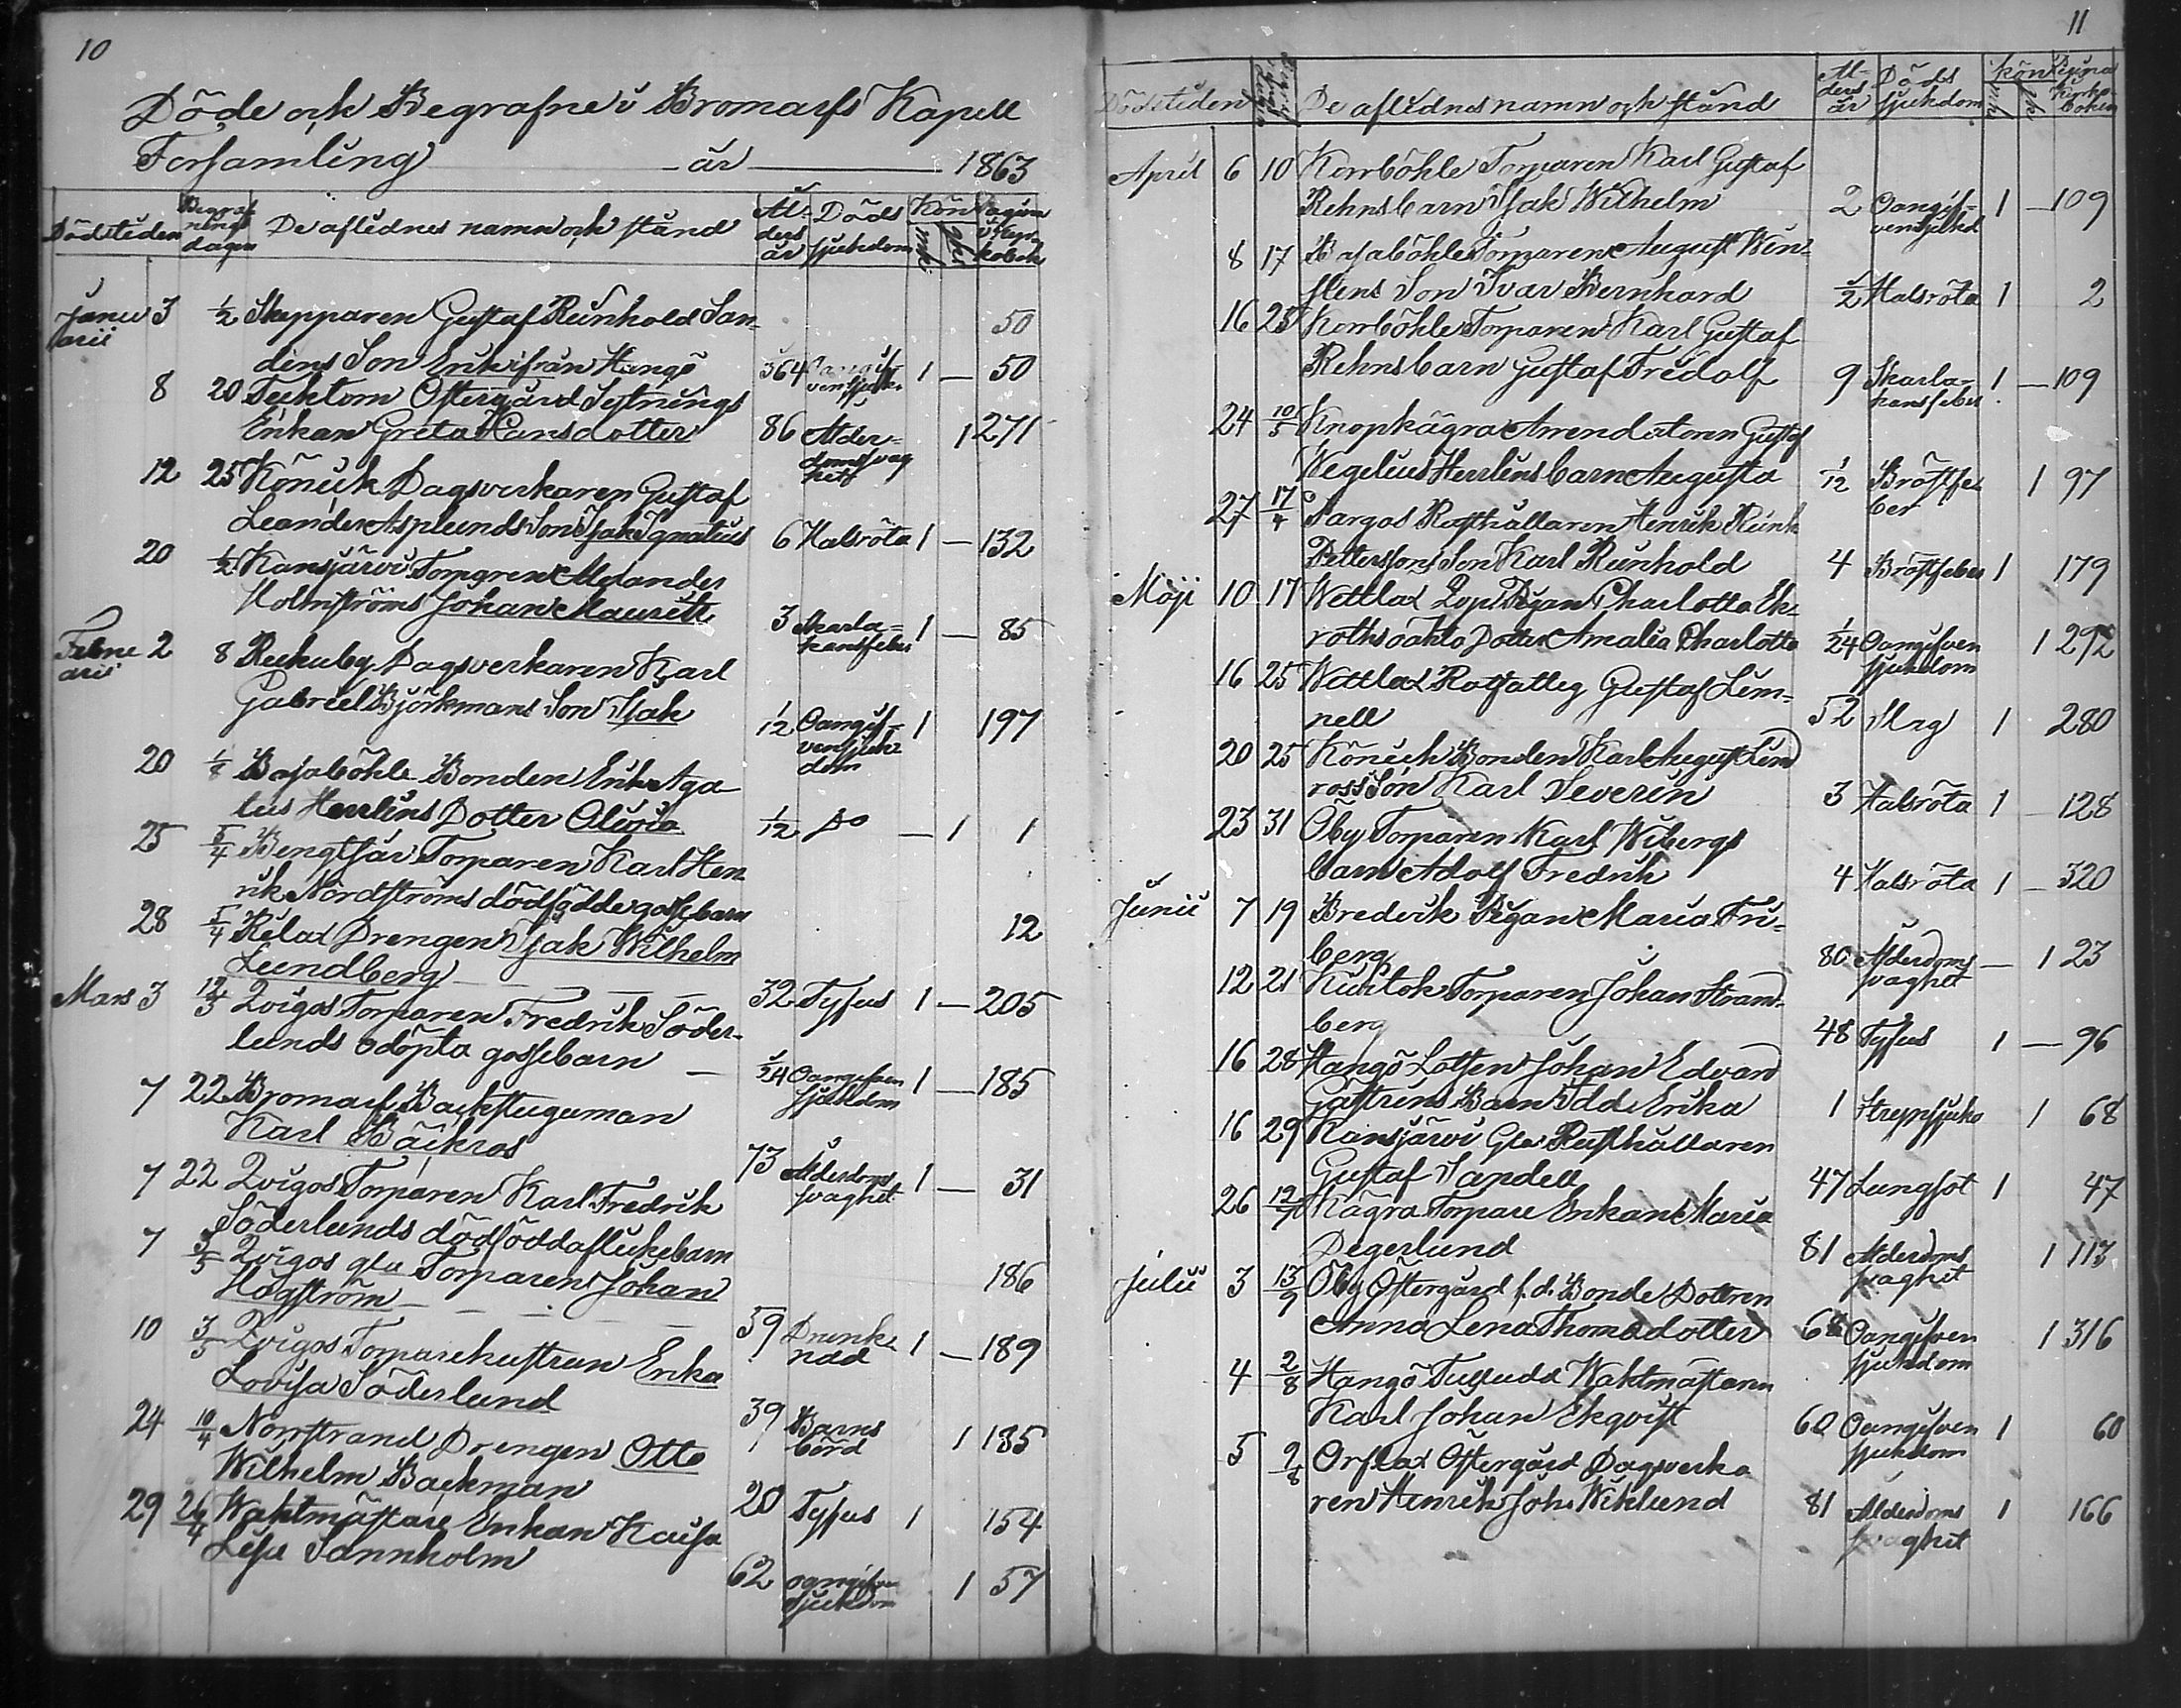 10
Döde och Begrafne i Bromarfs Kapell
Församling år 1863
Dödstiden Begrafnings dagen De aflednes namn och stånd Ålders år Döds sjukdom Kön mk qk Pagina i Kyrkobok
Januarii 3 1/2 Skepparen Gustaf Reinhold San- 50
dins Son Erik ifrån Hangö Oangifven sjukd. 1 — 50
8 20 Tecktom Östergård Sytnings
Enkan Greta Hansdotter 86 Ålderdomssvaghet 1 271
12 25 Könick Dagsverkaren Gustaf
Leander Asplunds Son Isak Ignatius 6 Halsröta 1 — 132
20 1/2 Kansjärvi Torparen Alexander
Holmströms Johan Mauritz 3 Skarlakansfeber 1 — 85
Februarii 2 8 Rekuby Dagsverkaren Karl
Gabriel Björkmans Son Isak 1/12 Oangifven sjukdom 1 197
20 1/8 Bajaböhle Bonden Erik Aga-
tus Herrlins Dotter Olivia 1/12 Do — 1 1
25 5/4 Bengtsår Torparen Karl Hen-
rik Nordströms dödfödde gossebarn
28 5/4 Rilax Drengen Isak Wilhelm 12
Lundberg
Mars 3 12/3 Qvigos Torparen Fredrik Söder- 32 Tyfus 1 — 205
lunds odöpta gossebarn 1/24 Oangifven sjukdom 1 — 185
7 22 Bromarf Backstuguman
Karl Bäckros 73 Ålderdoms svaghet 1 — 31
7 22 Qvigos Torparen Karl Fredrik
Söderlunds dödfödda flickebarn
7 3/5 Qvigos gla Torparen Johan 186
Högström 59 Drunknad 1 — 189
10 3/5 Qvigos Torparehustrun Erika
Lovisa Söderlund 39 Barnsbörd 1 185
24 10/4 Norrstrand Drengen Otto
Wilhelm Backman 20 Tyfus 1 154
29 26/4 Waktmästare Enkan Kaisa
Lisa Sannholm 62 oangifven sjukdom 1 57
11
Dödstiden De aflednes namn och stånd Ålders år Döds sjukdom kön mk qk Pagina Kyrkoboken
April 6 10 Korrböhle Torparen Karl Gustaf
Rehns barn Isak Wilhelm 2 Oangifven sjukd 1 — 109
8 17 Bajaböhle Torparen August Win-
stens Son Ivar Bernhard 1/2 Halsröta 1 2
16 25 Korrböhle Torparen Karl Gustaf
Rehns barn Gustaf Fredolf 9 Skarlakansfeber 1 — 109
24 10/5 Knopkägra Arrendatoren Gustaf
Wegelius Herrlins barn Augusta 1/12 Bröstfeber 1 97
27 17/4 Pargas Rusthållaren Henrik Reinh
Petterssons Son Karl Reinhold 4 Bröstfeber 1 179
Maji 10 17 Wettlax Pigan Charlotta Ek-
roths oäkta Dotter Amalia Charlotta 1/24 Oangifven sjukdom 1 292
16 25 Wettlax Rotfattig Gustaf Lin-
nell 52 Slag 1 280
20 25 Könick Bonden Karl August Lind
ross Son Karl Severin 3 Halsröta 1 — 128
23 31 Öby Torparen Karl Wibergs
barn Adolf Fredrik 4 Halsröta 1 — 320
Junii 7 19 Bredvik Pigan Maria Fri-
berg 80 Ålderdoms svaghet — 1 23
12 21 Kuntok Torparen Johan Strand-
berg 48 Tyfus 1 — 96
16 28 Hangö Lotsen Johan Edvard
Gästrins Barn Ida Erika 1 Strypsjuka 1 68
16 29 Kansjärvi Gla Rusthållaren
Gustaf Sandell 47 Lungsot 1 47
26 12/7 Kägra Torpare Enkan Maria
Degerlund 81 Ålderdoms svaghet 1 113
Julii 3 13/9 Öby Östergård f.d. Bonde Dottren
Anna Lena Thomsdotter 68 Oangifven sjukdom 1 316
4 2/8 Hangö Waktmästaren
Karl Johan Ekqvist 60 Oangifven sjukdom 1 60
5 2/8 Orslax Östergård Dagsverka-
ren Henrik Joh. Wiklund 81 Ålderdoms svaghet 1 166